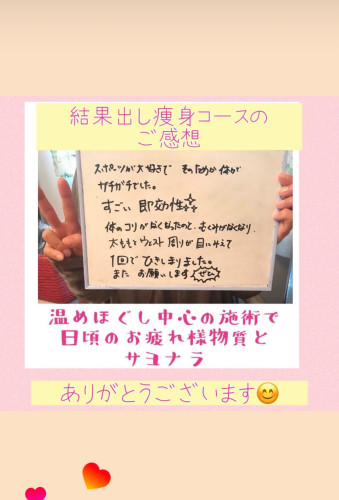 結果出し痩身コースの
ご感想
スポーツが大好きで そのためか体が
ガチガチでした。
すごい 即効性
体のコリがなくなったのと、むくみがなくなり、
太ももとウェスト周りが目にみえて
1回でひきしまりました。
また お願いします ぜひ
温めほぐし中心の施術で
日頃のお疲れ様物質と
サヨナラ
ありがとうございます😊